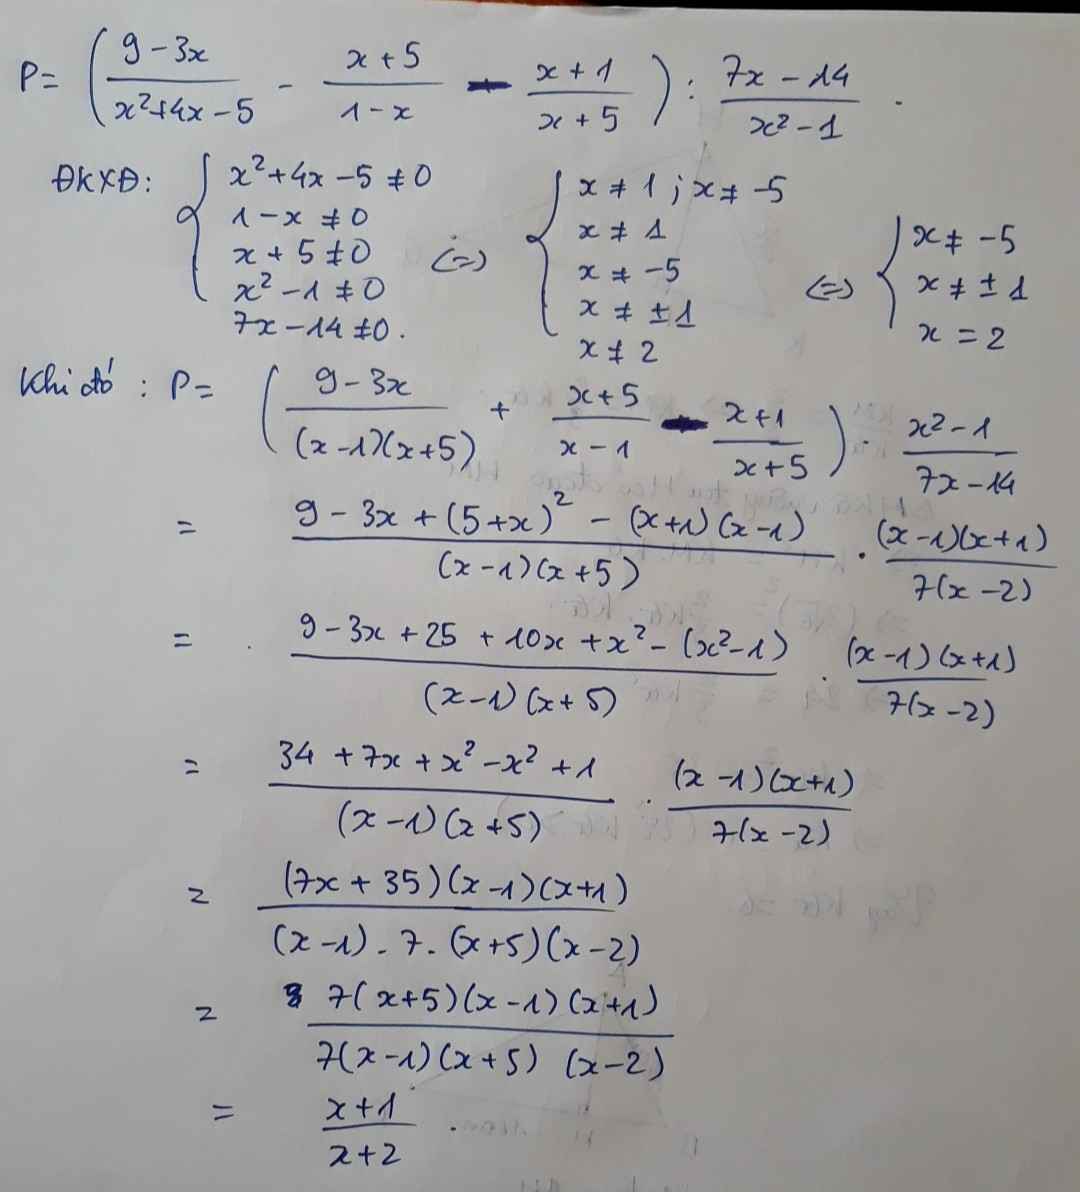 P = ( (9 - 3x)/(x² + 4x - 5) - (x + 5)/(1 - x) - (x + 1)/(x + 5) ) : (7x - 14)/(x² - 1) .
ĐKXĐ: { x² + 4x - 5 ≠ 0 ; 1 - x ≠ 0 ; x + 5 ≠ 0 ; x² - 1 ≠ 0 ; 7x - 14 ≠ 0 . (=) { x ≠ 1 ; x ≠ -5 ; x ≠ 1 ; x ≠ -5 ; x ≠ ±1 ; x ≠ 2 (=) { x ≠ -5 ; x ≠ ±1 ; x = 2
Khi đó : P = ( (9 - 3x)/((x - 1)(x + 5)) + (x + 5)/(x - 1) - (x + 1)/(x + 5) ) . (x² - 1)/(7x - 14)
= (9 - 3x + (5 + x)² - (x + 1)(x - 1))/((x - 1)(x + 5)) . ((x - 1)(x + 1))/(7(x - 2))
= (9 - 3x + 25 + 10x + x² - (x² - 1))/((x - 1)(x + 5)) . ((x - 1)(x + 1))/(7(x - 2))
= (34 + 7x + x² - x² + 1)/((x - 1)(x + 5)) . ((x - 1)(x + 1))/(7(x - 2))
= ((7x + 35)(x - 1)(x + 1))/((x - 1) . 7 . (x + 5)(x - 2))
= (7(x + 5)(x - 1)(x + 1))/(7(x - 1)(x + 5)(x - 2))
= (x + 1)/(x + 2) .